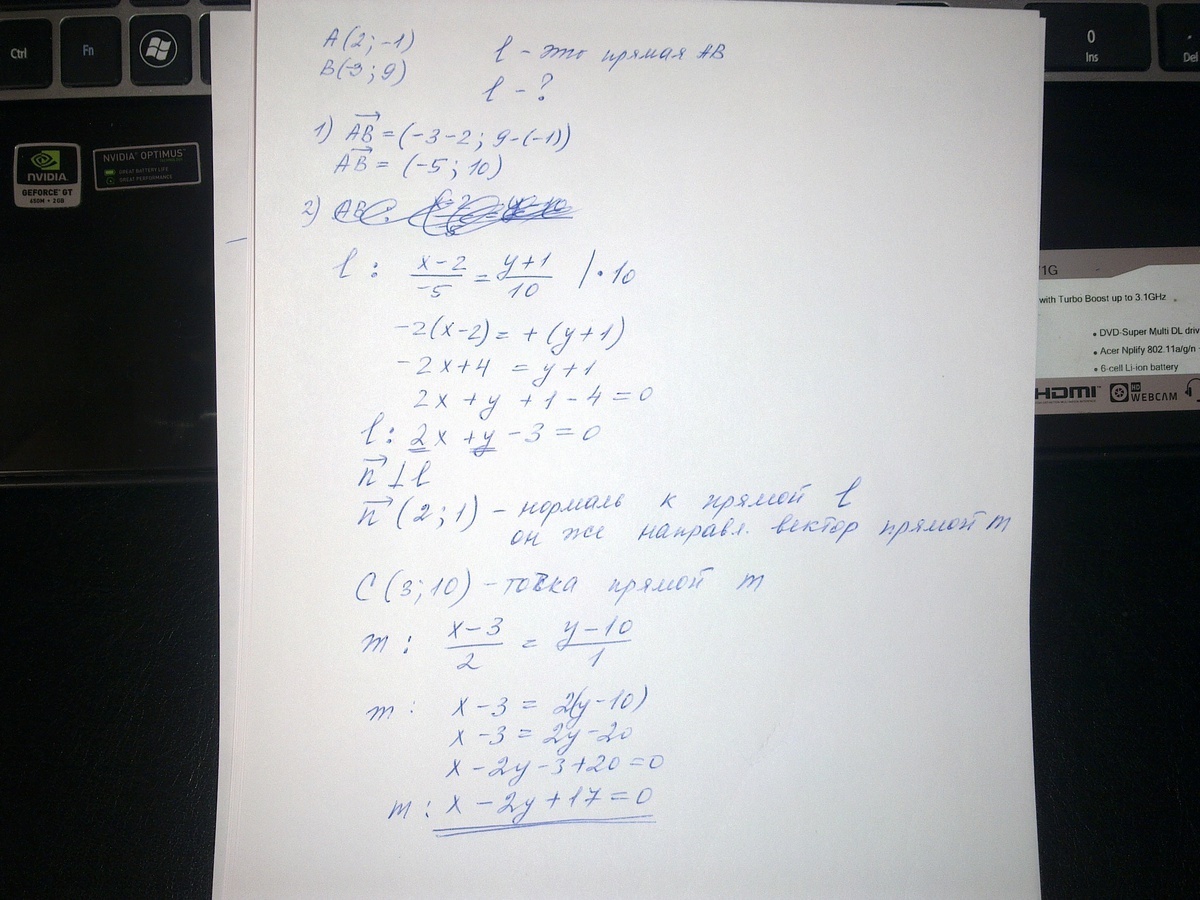 Ctrl
Fn
0
Ins
Del
NVIDIA
GEFORCE GT
NVIDIA OPTIMUS™
GREAT BATTERY LIFE
GREAT PERFORMANCE
A(2; -1)
B(-3; 9)
l - это прямая AB
l - ?
1) AB = (-3-2; 9-(-1))
AB = (-5; 10)
2)
l : x-2/-5 = y+1/10 /·10
-2(x-2) = +(y+1)
-2x+4 = y+1
2x + y + 1 - 4 = 0
l: 2x + y - 3 = 0
n ⊥ l
n (2; 1) - нормаль к прямой l
он же направл. вектор прямой m
C(3; 10) - точка прямой m
m : x-3/2 = y-10/1
m : x-3 = 2(y-10)
x-3 = 2y-20
x-2y-3+20=0
m : x-2y+17=0
/1G
with Turbo Boost up to 3.1GHz
• DVD-Super Multi DL driv
• Acer Nplify 802.11a/g/n
• 6-cell Li-ion battery
HDMI
HD WEBCAM